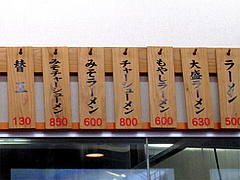 ラーメン
500
大盛ラーメン
630
もやしラーメン
600
チャーシューメン
800
みそラーメン
600
みそチャーシューメン
850
替玉
130